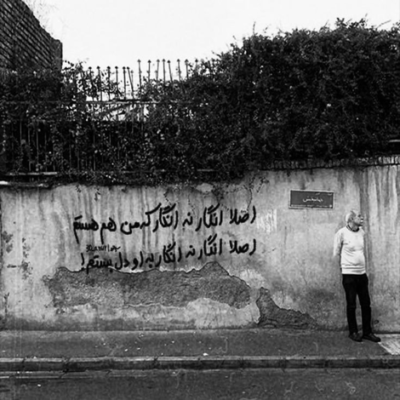 اصلا انگار نه انگار که من هم هستم
اصلا انگار نه انگار به او دل بستم!